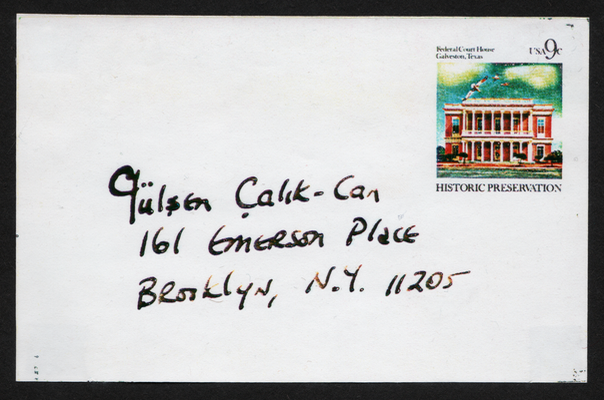 Federal Court House
Galveston, Texas
USA 9c
HISTORIC PRESERVATION
Gülşen Çalık-Can
161 Emerson Place
Brooklyn, N.Y. 11205